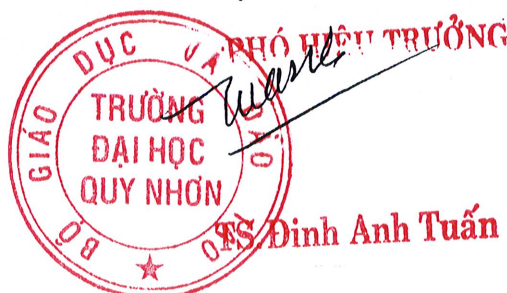 PHÓ HIỆU TRƯỞNG
BỘ GIÁO DỤC VÀ ĐÀO TẠO
TRƯỜNG
ĐẠI HỌC
QUY NHƠN
TS. Đinh Anh Tuấn